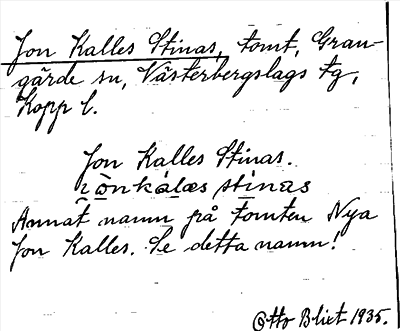 Jon Kalles Stinas, tomt, Gran-
gärde sn, Västerbergslags tg,
Kopp l.
Jon Kalles Stinas.
kálæs stinas
Annat namn på tomten Nya
Jon Kalles. Se detta namn!
Otto Blixt 1935.